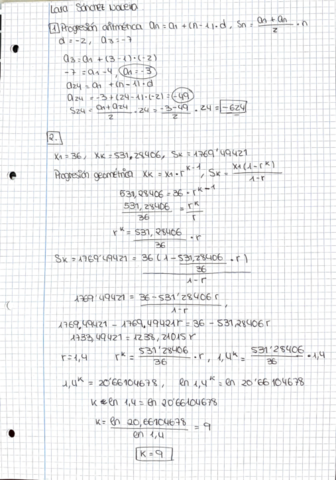 Lara Sánchez
1) Progresión aritmética an = a1 + (n-1)·d, Sn = (a1 + an)/2 · n
d = -2, a3 = -7
a3 = a1 + (3-1)·(-2)
-7 = a1 - 4, a1 = -3
a24 = a1 + (n-1)·d
a24 = -3 + (24-1)·(-2) = -49
S24 = (a1 + a24)/2 · 24 = (-3-49)/2 · 24 = -624
2.
x1 = 36, xk = 531,28406, Sk = 1769'49421
Progresión geométrica xk = x1·r^(k-1), Sk = x1(1-r^k)/(1-r)
531,28406 = 36·r^(k-1)
531,28406/36 = r^k/r
r^k = 531,28406/36 · r
Sk = 1769'49421 = 36(1 - 531,28406/36 · r)/(1-r)
1769'49421 = (36 - 531'28406r)/(1-r),
1769,49421 - 1769,49421r = 36 - 531,28406r
1733,49421 = 1238,21015r
r = 1,4 r^k = 531'28406/36 · r, 1,4^k = 531'28406/36 · 1,4
1,4^k = 20'66104678, ln 1,4^k = ln 20'66104678
k · ln 1,4 = ln 20'66104678
k = ln 20,66104678/ln 1,4 = 9
k = 9